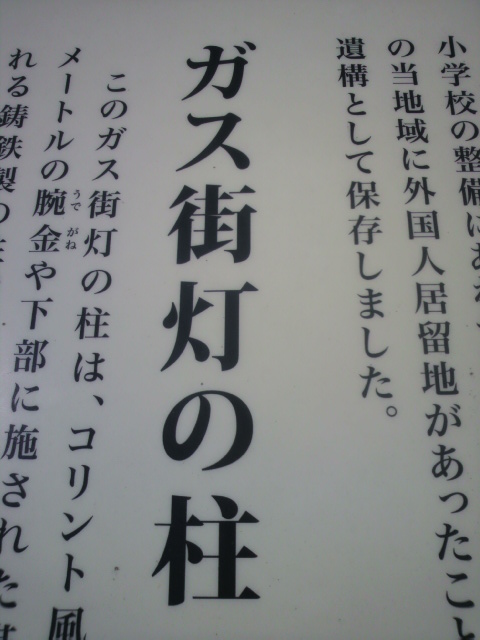 小学校の整備にあ
の当地域に外国人居留地があったこと
遺構として保存しました。
ガス街灯の柱
このガス街灯の柱は、コリント風
メートルの腕金や下部に施された
うで がね
れる鋳鉄製の